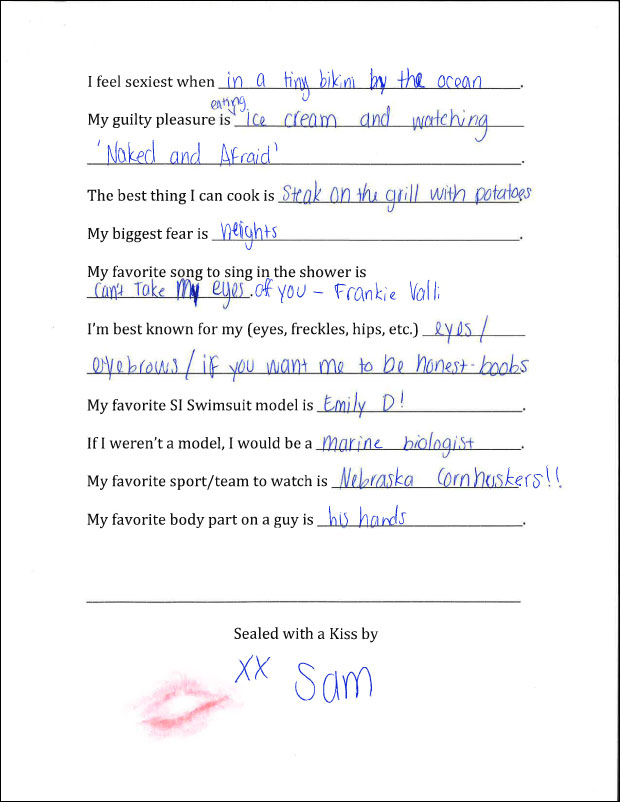 I feel sexiest when in a tiny bikini by the ocean.
eating
My guilty pleasure is ice cream and watching
'Naked and Afraid'.
The best thing I can cook is Steak on the grill with potatoes.
My biggest fear is heights.
My favorite song to sing in the shower is
Can't Take My eyes.off you – Frankie Valli
I'm best known for my (eyes, freckles, hips, etc.) eyes/
eyebrows/if you want me to be honest-boobs
My favorite SI Swimsuit model is Emily D!.
If I weren't a model, I would be a marine biologist.
My favorite sport/team to watch is Nebraska Cornhuskers!!
My favorite body part on a guy is his hands.
Sealed with a Kiss by
XX Sam